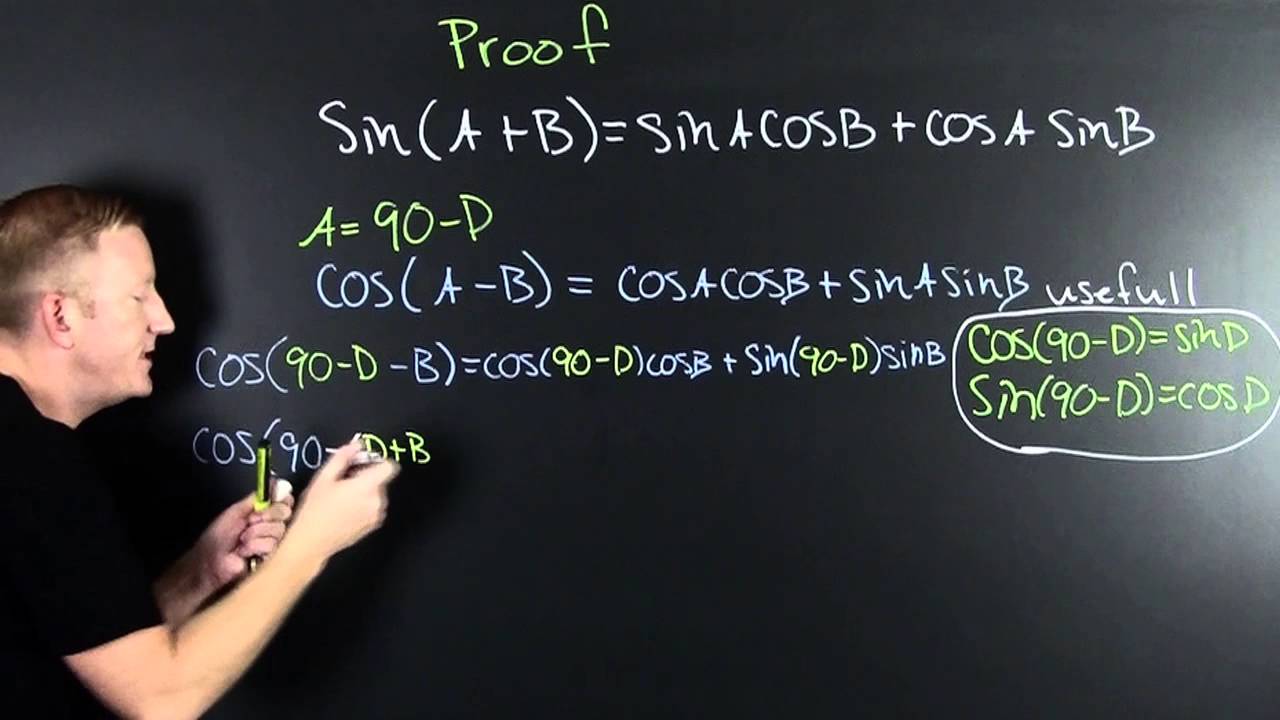 Proof
Sin(A+B)=sinAcosB+cosA sinB
A=90-D
cos(A-B)=cosAcosB+sinAsinB usefull
cos(90-D-B)=cos(90-D)cosB+sin(90-D)sinB
cos(90-D)=sinD
Sin(90-D)=cosD
cos(90-(D+B